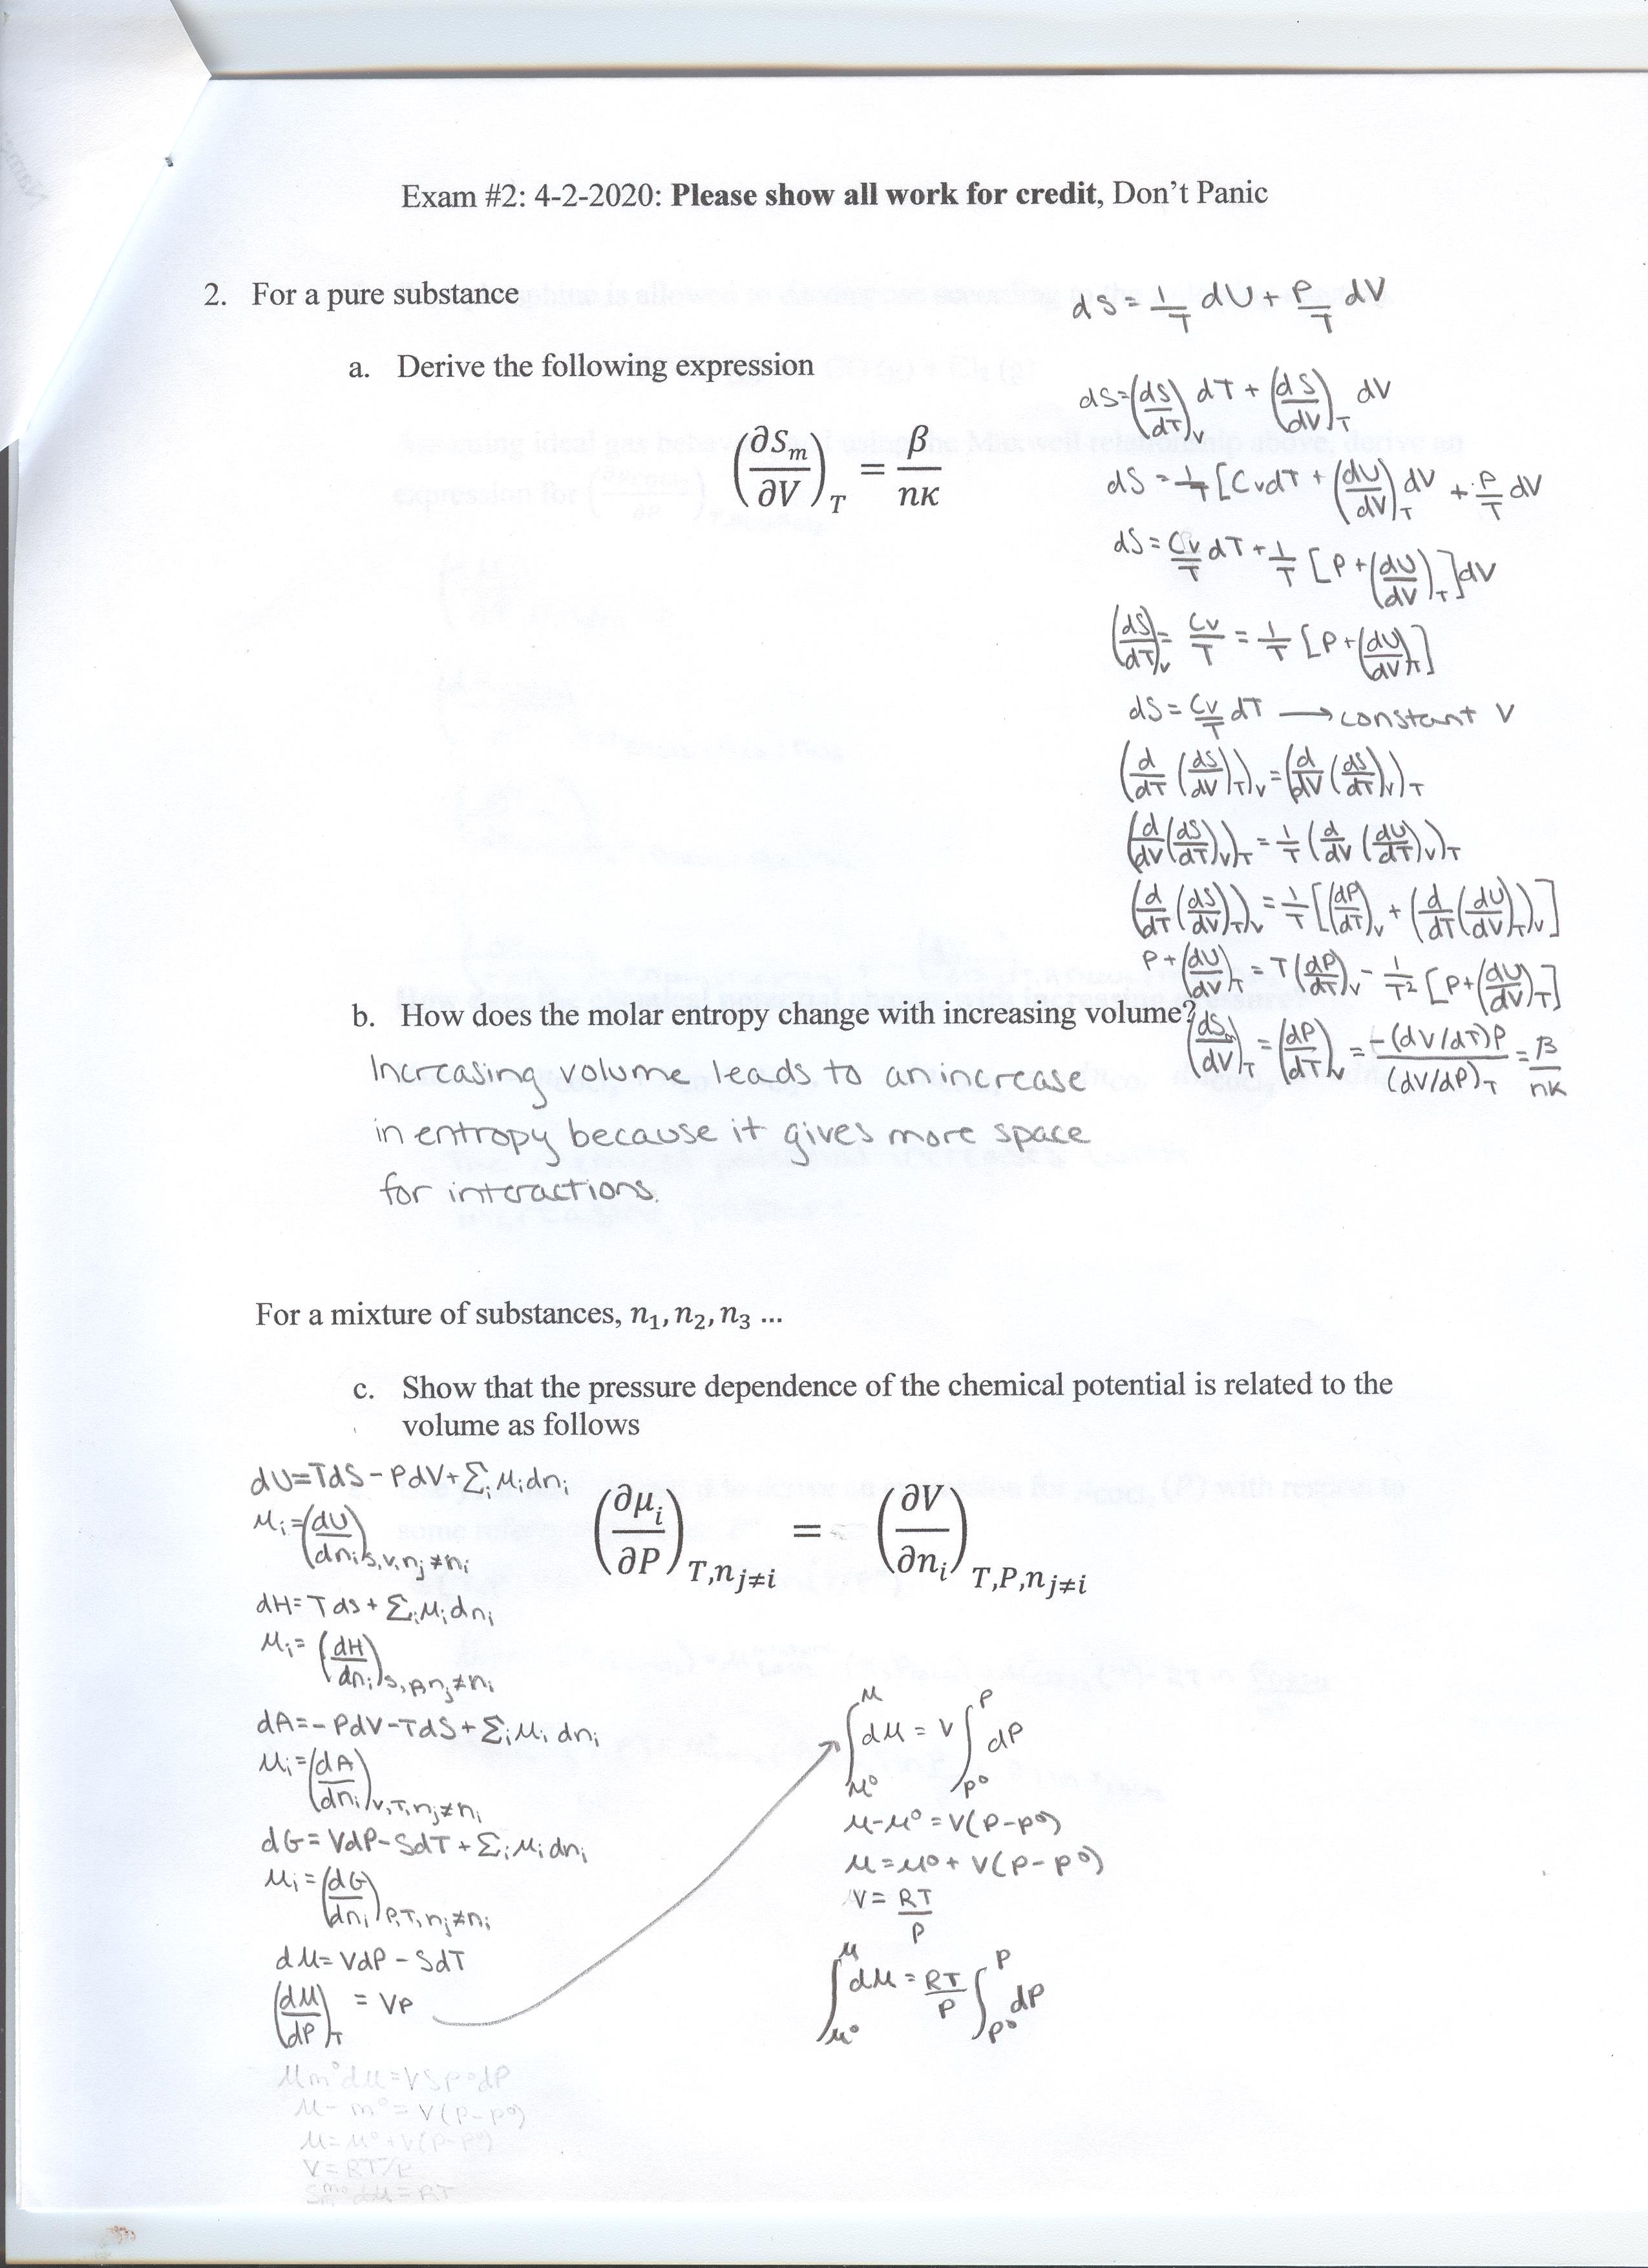 Exam #2: 4-2-2020: Please show all work for credit, Don't Panic
2. For a pure substance
a. Derive the following expression
(∂Sₘ/∂V)_T = β/nκ
dS = 1/T dU + P/T dV
dS = (dS/dT)_V dT + (dS/dV)_T dV
dS = 1/T [CvdT + (dU/dV)_T dV + P/T dV
dS = Cv/T dT + 1/T [P + (dU/dV)_T] dV
(dS/dT)_V = Cv/T = 1/T [P + (dU/dV)_T]
dS = Cv/T dT → constant V
(d/dT (dS/dV)_T)_V = (d/dV (dS/dT)_V)_T
(d/dV (dS/dT)_V)_T = 1/T (d/dV (dU/dT)_V)_T
(d/dT (dS/dV)_T)_V = 1/T [(dP/dT)_V + (d/dT (dU/dV)_T)_V]
P + (dU/dV)_T = T(dP/dT)_V - 1/T² [P + (dU/dV)_T]
(dS/dV)_T = (dP/dT)_V = -(dV/dT)P/(dV/dP)_T = β/nκ
b. How does the molar entropy change with increasing volume?
Increasing volume leads to an increase
in entropy because it gives more space
for interactions.
For a mixture of substances, n₁, n₂, n₃ ...
c. Show that the pressure dependence of the chemical potential is related to the
volume as follows
(∂μᵢ/∂P)_T,nⱼ≠ᵢ = (∂V/∂nᵢ)_T,P,nⱼ≠ᵢ
dU = TdS - PdV + Σᵢ μᵢdnᵢ
μᵢ = (dU/dnᵢ)_S,V,nⱼ≠nᵢ
dH = Tds + Σᵢ μᵢdnᵢ
μᵢ = (dH/dnᵢ)_S,P,nⱼ≠nᵢ
dA = -PdV - TdS + Σᵢ μᵢ dnᵢ
μᵢ = (dA/dnᵢ)_V,T,nⱼ≠nᵢ
dG = VdP - SdT + Σᵢ μᵢ dnᵢ
μᵢ = (dG/dnᵢ)_P,T,nⱼ≠nᵢ
dμ = VdP - SdT
(dμ/dP)_T = VP
∫_μ°^μ dμ = V ∫_P°^P dP
μ - μ° = V(P - P°)
μ = μ° + V(P - P°)
V = RT/P
∫_μ°^μ dμ = RT/P ∫_P°^P dP
μ - m° = V(P - P°)
μ = μ° + V(P - P°)
V = RT/P